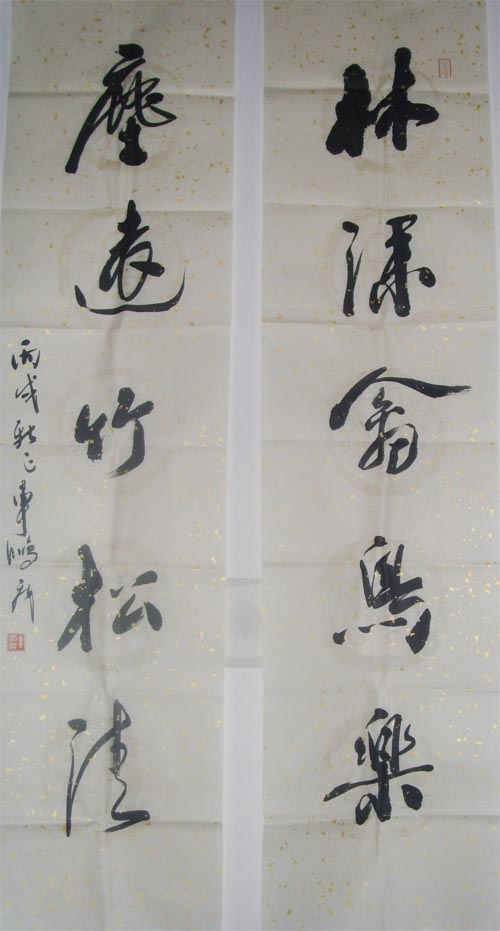 林深禽鳥樂
塵遠竹松清
丙戌 車鵬